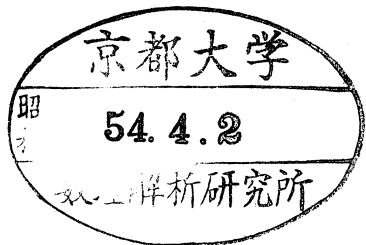 京都大学
昭
54.4.2
解析研究所